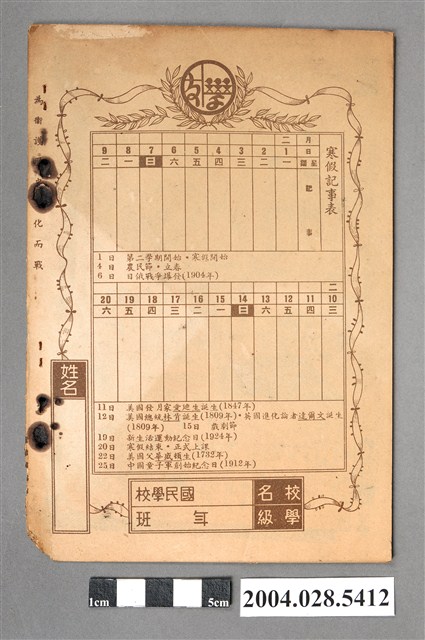 寒假記事表
二月
日 1 2 3 4 5 6 7 8 9
星期 一 二 三 四 五 六 日 一 二
記事
1日 第二學期開始・寒假開始
4日 農民節・立春
6日 日俄戰爭爆發(1904年)
二
10 11 12 13 14 15 16 17 18 19 20
三 四 五 六 日 一 二 三 四 五 六
11日 美國發明家愛迪生誕生(1847年)
12日 美國總統林肯誕生(1809年)・英國進化論者達爾文誕生
(1809年) 15日 戲劇節
19日 新生活運動紀念日(1924年)
20日 寒假結束・正式上課
22日 美國父華盛頓生(1732年)
25日 中國童子軍創始紀念日(1912年)
校名 國民學校
學級 年 班
姓名
化而戰
1cm 5cm
2004.028.5412